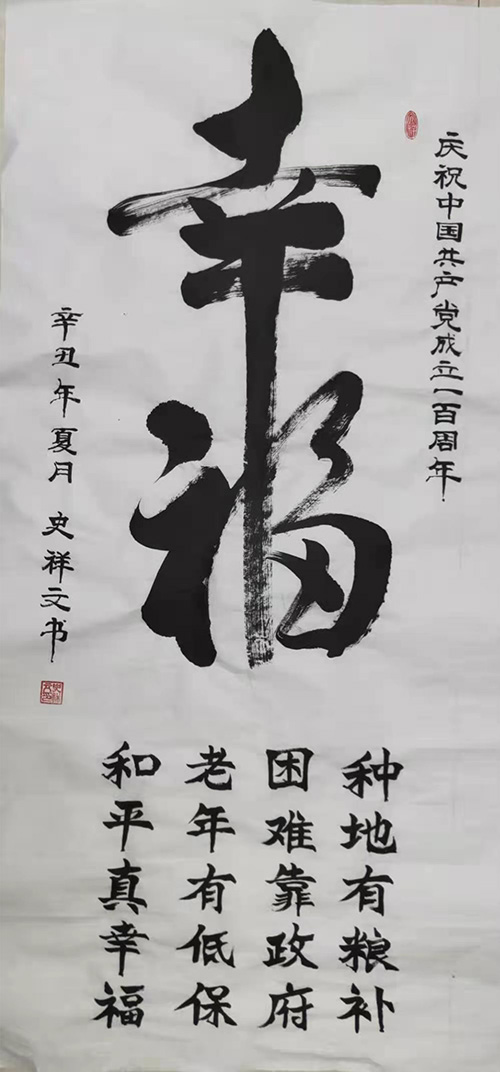 庆祝中国共产党成立一百周年
幸福
辛丑年夏月 史祥文书
种地有粮补
困难靠政府
老年有低保
和平真幸福